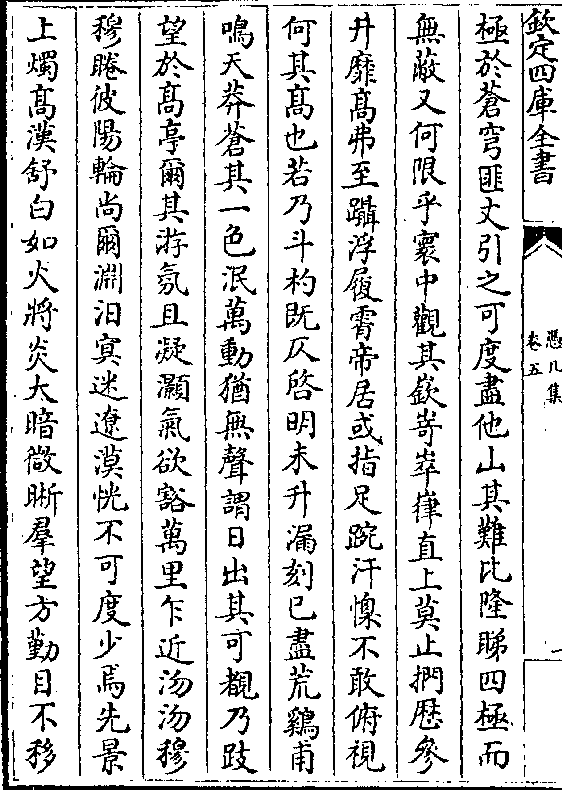 欽定四庫全書
憑几集
卷五
極於蒼穹匪丈引之可度盡他山其難比隆睇四極而
無蔽又何限乎寰中觀其嶔崎崒嵂直上莫止捫歷參
井靡髙弗至躡浮履霄帝居或指足踠汗慄不敢俯視
何其髙也若乃斗杓既仄啓明未升漏刻已盡荒鷄甫
鳴天莽蒼其一色泯萬動猶無聲謂日出其可觀乃跂
望於髙亭爾其游氛且凝灝氣欲豁萬里乍近沕沕穆
穆睠彼陽輪尚爾淵汩㝠迷遼漠恍不可度少焉先景
上燭髙漢舒白如火將炎太暗微晰羣望方勤目不移